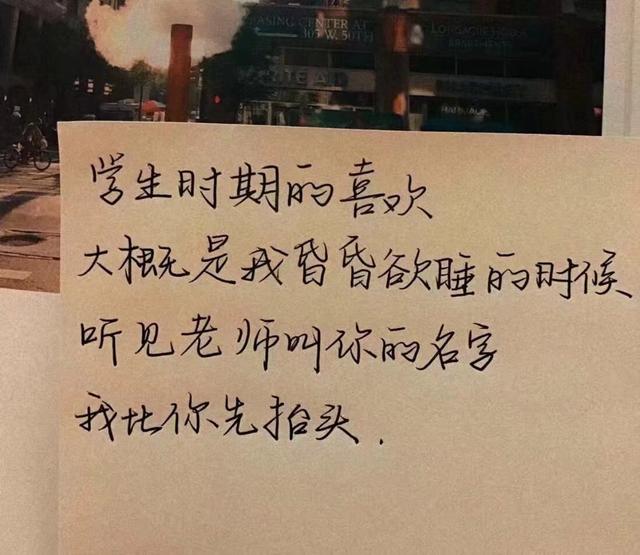 ASING CENTER AT
305 W. 50TH
LONGACRE HOUSE
APARTMENTS
学生时期的喜欢
大概是我昏昏欲睡的时候
听见老师叫你的名字
我比你先抬头.